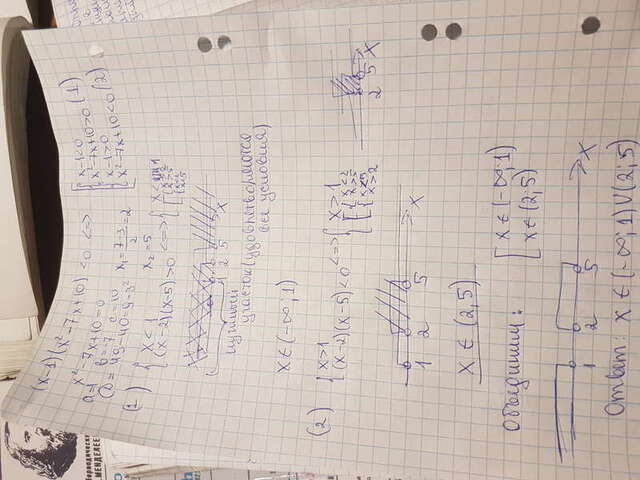 Периодическ
.МЕНДЕЛЕЕВ
(x-1)(x²-7x+10)<0 <=> [ { x-1<0
x²-7x+10>0 (1)
{ x-1>0
x²-7x+10<0 (2)
x²-7x+10=0
a=1 b=-7 c=10
D=49-40=9=3² x₁=7-3/2=2
x₂=5
(1) { x<1
(x-2)(x-5)>0 <=> { x<1
[ { x>2
x>5
{ x<2
x<5
1 2 5 x
нужный
участок (удовлетворяются
все условия)
x∈(-∞;1)
(2) { x>1
(x-2)(x-5)<0 <=> { x>1
[ { x<2
x>5
{ x<5
x>2
2 5 x
1 2 5 x
x∈(2,5)
Объединим: [ x∈(-∞;1)
x∈(2;5)
1 2 5 x
Ответ: x∈(-∞;1)∪(2;5)